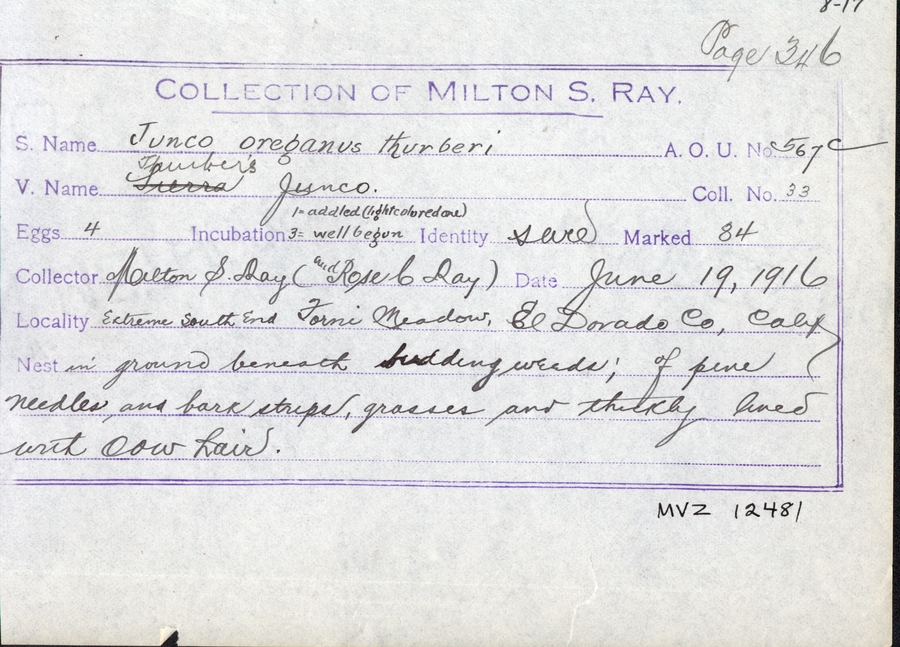 8-17
Page 346
COLLECTION OF MILTON S. RAY.
S. Name Junco oreganus thurberi A. O. U. No. 567c
Thurber's
V. Name Sierra Junco. Coll. No. 33
1= addled (light colored one)
Eggs 4 Incubation 3= well begun Identity sure Marked 84
Collector Milton S. Ray (and Rose C Ray) Date June 19, 1916
Locality Extreme South End Forni Meadow, El Dorado Co, Calif
Nest in ground beneath budding weeds; of pine
needles and bark strips, grasses and thickly lined
with cow hair.
MVZ 12481